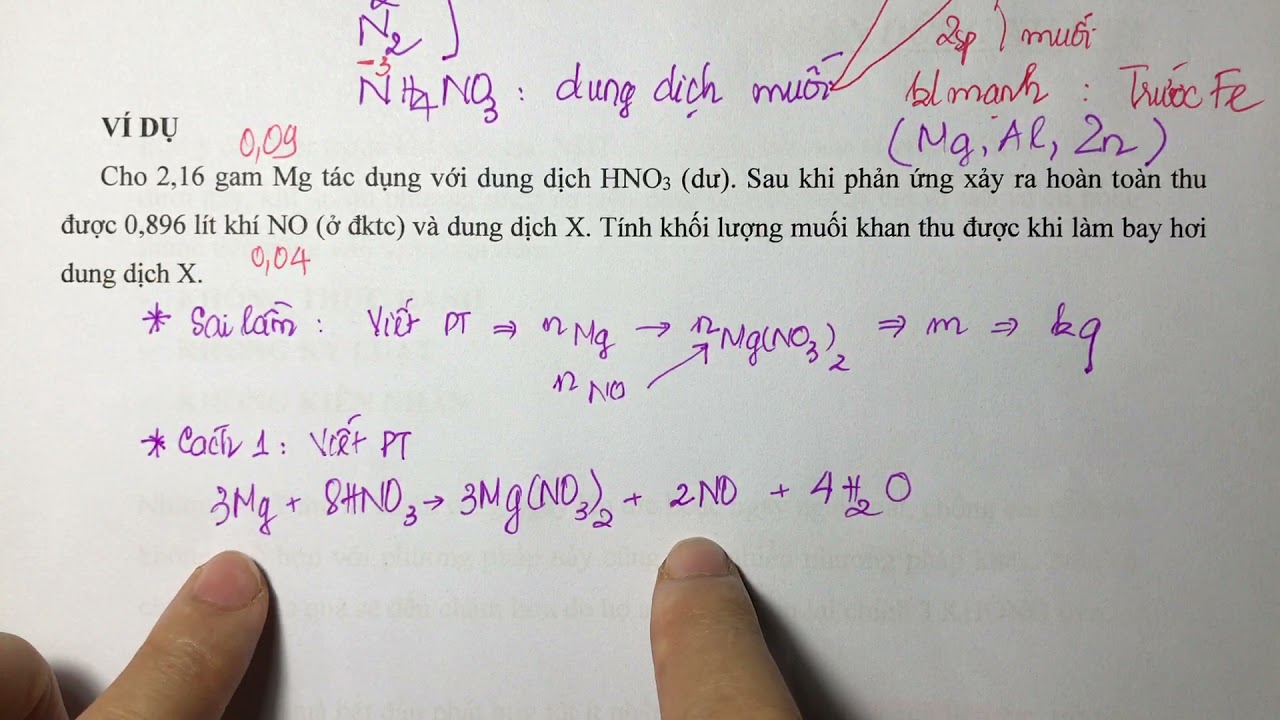 N₂
2sp ) muối
-3
NH₄NO₃ : dung dịch muối
kl mạnh : Trước Fe
(Mg, Al, Zn)
VÍ DỤ
0,09
Cho 2,16 gam Mg tác dụng với dung dịch HNO₃ (dư). Sau khi phản ứng xảy ra hoàn toàn thu
được 0,896 lít khí NO (ở đktc) và dung dịch X. Tính khối lượng muối khan thu được khi làm bay hơi
0,04
dung dịch X.
* Sai lầm : Viết PT ⇒ n Mg → n Mg(NO₃)₂ ⇒ m ⇒ kq
n NO
* Cách 1 : Viết PT
3Mg + 8HNO₃ → 3Mg(NO₃)₂ + 2NO + 4H₂O